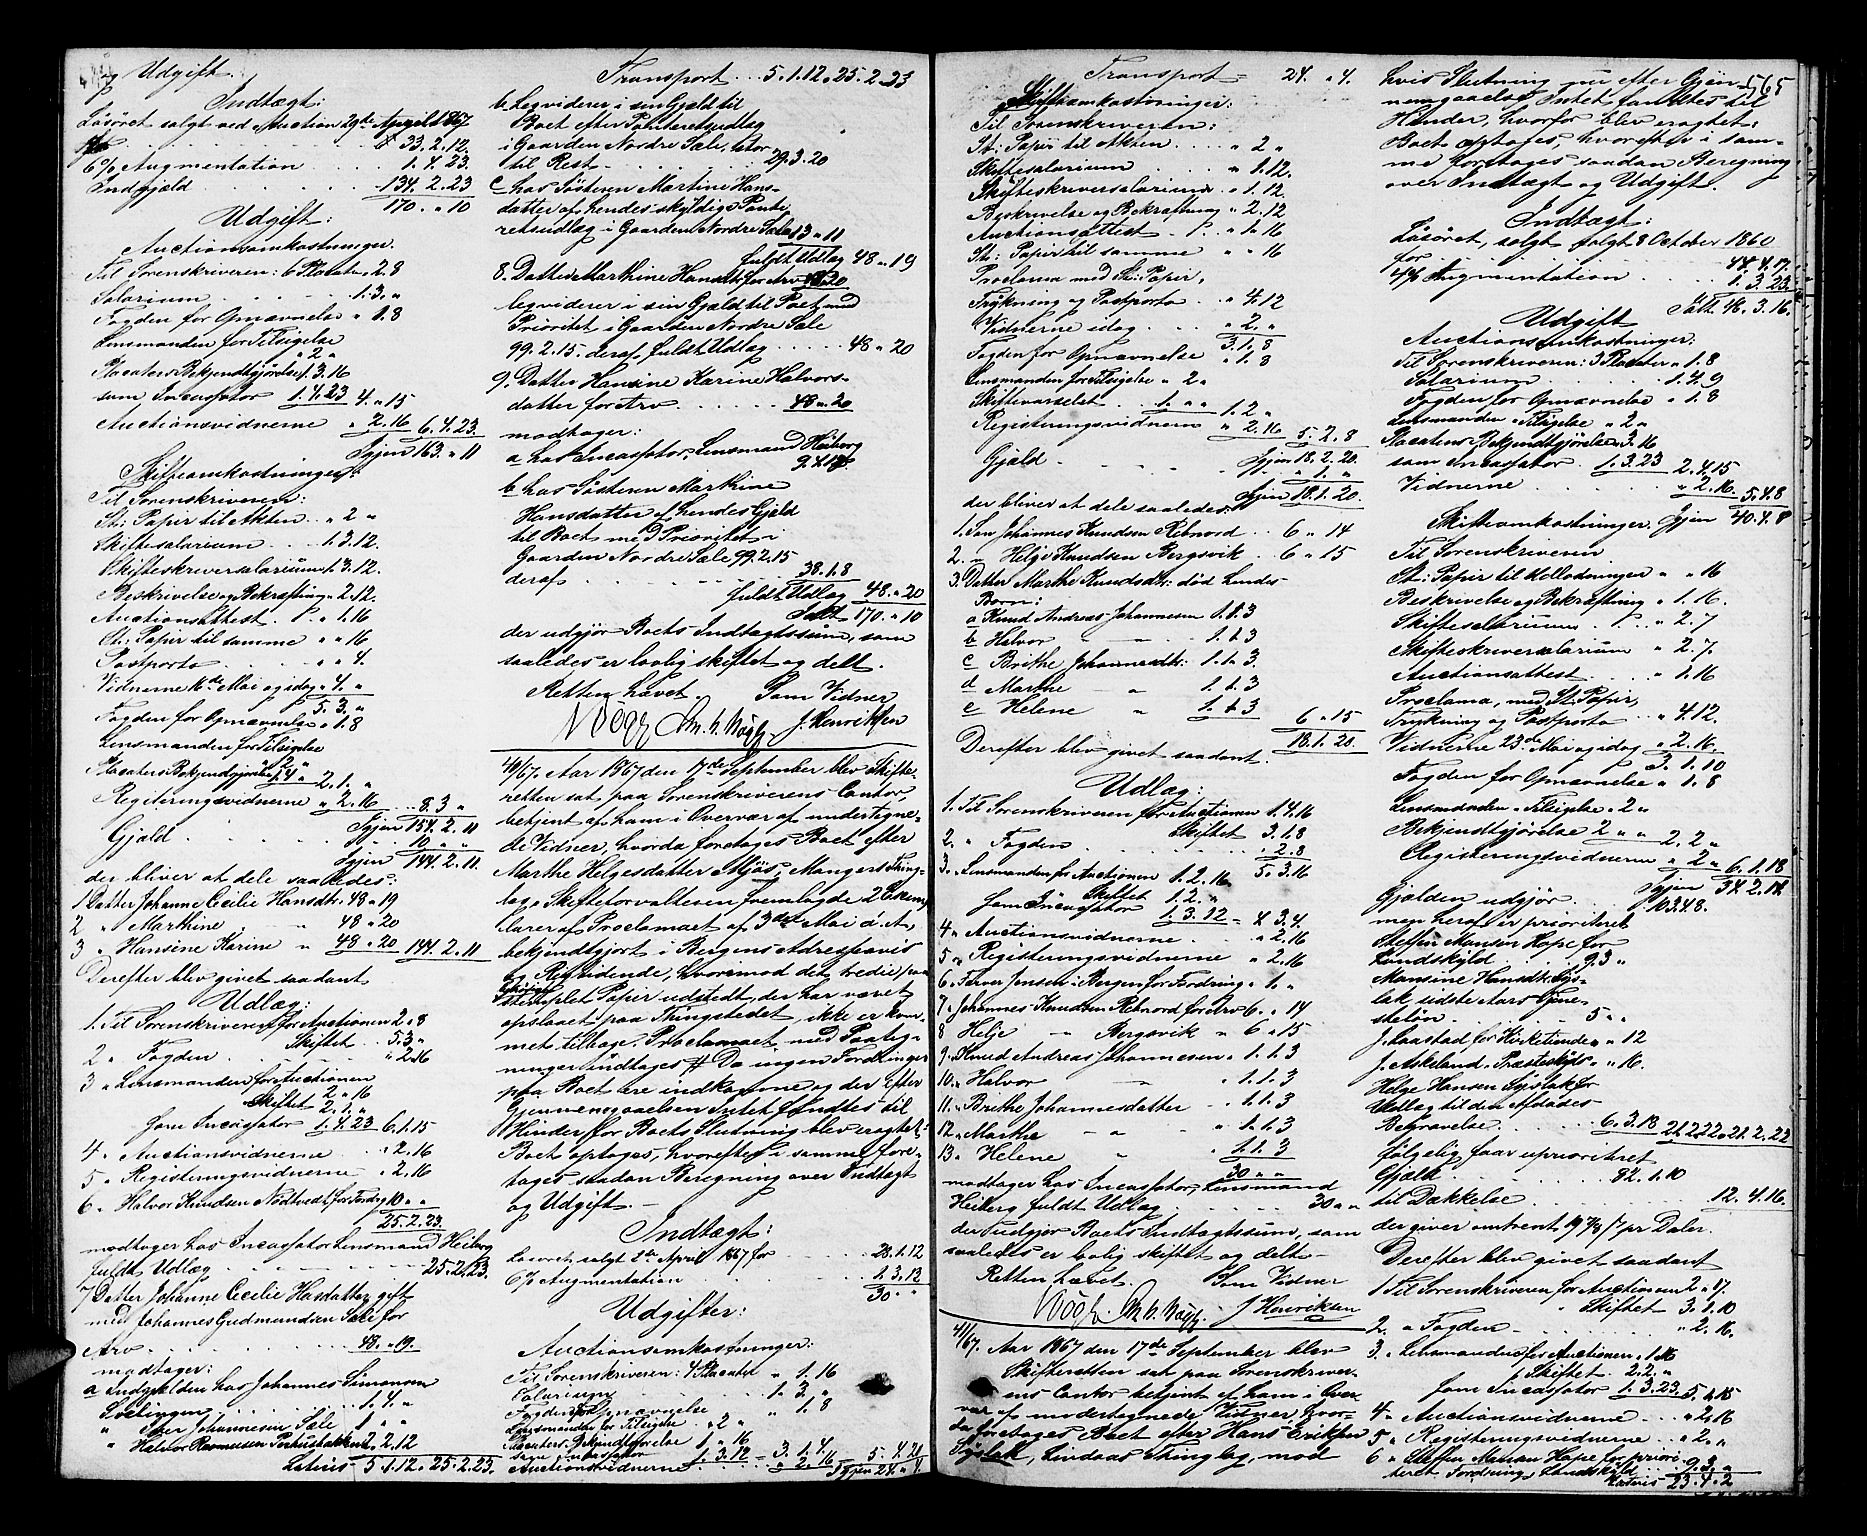 og Udgift.
Indtægt:
Løsøret solgt ved Auction 29de April 1867
for . . . 33. 2. 12.
6% Augmentation 1. 4. 23.
Indgjæld . . . 134. 2. 23
170. " 10
Udgift:
Auctionsomkostninger.
Til Sorenskriveren: 6 Placater " 2. 8
Salarium . . . 1. 3. "
Fogden for Opnævnelse " 1. 8
Lensmanden for Tilsigelse
" 2 "
Placaters Bekjendtgjørelse 1. 3. 16
som Incassator 1. 4. 23 4. " 15
Auctionsvidnerne " 2. 16 6. 4. 23.
Igjen 163. " 11
Skifteomkostninger:
Til Sorenskriveren:
St: Papir til Akten . . " 2 "
Skiftesalarium . . . 1. 3. 12.
Skifteskriversalarium 1. 3. 12.
Beskrivelse og Bekræftning " 2. 12.
Auctionsattest . " 1. 16
St: Papir til samme " " 16
Postporto . . . " " 4.
Vidnerne 16de Mai og idag " 4. "
5. 3. "
Fogden for Opnævnelse " 1. 8
Lensmanden for Tilsigelse
" 2 "
Placaters Bekjendtgjørelse 1. 4 " 2. 1. "
Registeringsvidnerne " 2. 16 8. 3 "
Igjen 154. 2. 11
Gjæld . . . 10 " "
Igjen 144. 2. 11.
der bliver at dele saaledes:
1 Datter Johanne Cecilie Hansdtr. 48 " 19
2 " Marthine " 48 " 20
3 " Hansine Karine " 48 " 20 144. 2. 11
Derefter blev givet saadant
Udlæg:
1. Til Sorenskriveren for Auctionen 2. " 8
Skiftet 5. 3. "
2 " Fogden . . . " 2. 16
3 " Lensmanden for Auctionen
" 2 " 16
Skiftet 2. 1. "
som Incassator 1. 4. 23 6. 1. 15
4 " Auctionsvidnerne . . . " 2. 16
5 " Registeringsvidnerne . . " 2. 16
6 " Halvor Knudsen Nødtvedt for Fordrg 10 " "
25. 2. 23.
modtager hos Incassator Lensmand Heiberg
fuldt Udlæg . . . 25. 2. 23.
7 Datter Johanne Cecilie Hansdatter gift
med Johannes Gudmundsen Sæle for
Arv . . . 48. " 19.
modtager:
a Indgjælden hos Johannes Simonsen
1. 4. "
" Johannessen Sæle 1 " "
" Halvor Rasmussen 2. 2. 12
Lateris 5. 1. 12. " 25. 2. 23.
Transport . . . 5. 1. 12. " 25. 2. 23
b. Leqviderer i sin Gjæld til
Boet efter Panteretsudlæg
i Gaarden Nordre Sæle,
til Rest . . . 29. 3. 20
c hos Søsteren Martine Hans-
datter af hendes skyldige Pante
retsudlæg i Gaarden Nordre Sæle 13 " 11
fuldt Udlæg 48 " 19
8. Datter Marthine Hansdtr for Arv 48 " 20
leqviderer i sin Gjæld til Boet med
Prioritet i Gaarden Nordre Sæle
99. 2. 15. deraf fuldt Udlæg . . . 48 " 20
9. Datter Hansine Karine Halvors-
datter for Arv . . . 48 " 20
modtager:
a hos Incassator, Lensmand Heiberg
9. 4. 12
b hos Søsteren Marthine
Hansdatter af hendes Gjæld
til Boet med Prioritet i
Gaarden Nordre Sæle 99. 2. 15
deraf . . . 38. 1. 8
fuldt Udlæg 48. " 20
Sdlr 170. " 10
der udgjør Boets Indtægtssum, som
saaledes er lovlig skiftet og delt.
Retten hævet. Som Vidner
J. Henriksen
40/67. Aar 1867 den 17de September blev Skifte-
retten sat paa Sorenskriverens Contor,
betjent af ham i Overvær af undertegne-
de Vidner, hvorda foretages Boet efter
Marthe Helgesdatter Mjøs, Mangers Thing-
lag. Skifteforvalteren fremlagde 2 Exemp-
larer af Proclamaet af 3die Mai d. A.,
bekjendtgjort i Bergens Adresseavis
og Rigstidende, hvorimod det tredie paa
stemplet Papir udstedt, der har været
opslaaet paa Thingstedet, ikke er kom-
met tilbage. Proclamaet med Paateg-
ninger indtages # Da ingen Fordringer
paa Boet ere indkomne og der efter
Gjennemgaaelsen Intet fandtes til
Hinder for Boets Slutning blev eragtet:
Boet optages, hvorefter i samme fore-
tages saadan Beregning over Indtægt
og Udgift.
Indtægt:
Løsøret, solgt 2den April 1867 for 28. 1. 12
6% Augmentation . . . 1. 3. 12
30 " "
Udgifter:
Auctionsomkostninger:
Til Sorenskriveren: 4 Placater " 1. 16
Salarium . . . 1. 3. "
Fogden for Opnævnelse " 1. 8
Lensmanden for Tilsigelse " 2 "
Placaters Bekjendtgjørelse 1. " 16
som Incassator 1. 3. 12 3. 1. 4.
Auctionsvidnerne . . . " 2. 16 5. 4. 20
Igjen 24. " 4
Transport . . 24. " 4.
Skifteomkostninger:
Til Sorenskriveren:
St: Papir til Akten . . . " 2 "
Skiftesalarium . . . " 1. 12.
Skifteskriversalarium " 1. 12.
Beskrivelse og Bekræftning " 2. 12
Auctionsattest . . " 1. 16
St: Papir til samme " " 16
Proclama med St: Papir,
Trykning og Postporto . . " 4. 12
Vidnerne idag . . . " 2. "
3. 1. 8
Fogden for Opnævnelse " 1. 8
Lensmanden for Tilsigelse " 2 "
Skiftevarselet . . 1. " " 1. 2 "
Registeringsvidnerne " 2. 16 5. 2. 8
Igjen 18. 2. 20.
Gjæld . . . " 1. "
Igjen 18. 1. 20.
der bliver at dele saaledes:
1. Søn Johannes Knudsen Rebnord . . 6 " 14
2. " Helje Knudsen Bergsvik . . 6 " 15
3. Datter Marthe Knudsdtr: død hendes
Børn:
a Knud Andreas Johannesen 1. 1. 3
b Halvor — " 1. 1. 3
c Brithe Johannesdtr: 1. 1. 3.
d Marthe — " 1. 1. 3
e Helene " 1. 1. 3
6 " 15
18. 1. 20.
Derefter blev givet saadant
Udlæg:
1. Til Sorenskriveren for Auctionen 1. 4. 16
Skiftet 3. 1. 8
2. " Fogden . . . " 2. 8
5. 3. 16
3. " Lensmanden for Auctionen 1. 2. 16
Skiftet 1. 2. "
som Incassator 1. 3. 12 4. 3. 4.
4 " Auctionsvidnerne . . " 2. 16
5 " Registeringsvidnerne " 2. 16
6. " Farver Jensen i Bergen for Fordring " 1. "
7. " Johannes Knudsen Rebnord for Arv 6. " 14
8 Helje " Bergsvik " 6 " 15
9. " Knud Andreas Johannesen " 1. 1. 3
10. " Halvor — " 1. 1. 3
11. " Brithe Johannesdatter " 1. 1. 3
12. " Marthe " " 1. 1. 3
13. " Helene " " 1. 1. 3
30 " "
modtager hos Incassator, Lensmand
Heiberg fuldt Udlæg . . . 30 " "
der udgjør Boets Indtægtssum, som
saaledes er lovlig skiftet og delt —
Retten hævet. Som Vidner
J Henriksen
41/67. Aar 1867 den 17de September blev
Skifteretten sat paa Sorenskriver-
ens Contor betjent af ham i Over-
vær af undertegnede Vidner, hvor-
da foretages Boet efter Hans Eriksen
Syslak, Lindaas Thinglag, med
565
hvis Slutning nu efter Gjen-
nemgaaelse Intet fandtes til
Hinder, hvorfor blev eragtet:
Boet optages, hvorefter i sam-
me foretages saadan Beregning
over Indtægt og Udgift.
Indtægt:
Løsøret, solgt 8 October 1860
for . . . 44. 4. 17.
4% Augmentation . . . 1. 3. 23.
Sdlr 46. 3. 16.
Udgift
Auctionsomkostninger.
Til Sorenskriveren: 3 Placater " 1. 8
Salarium . . . 1. 4. 9
Fogden for Opnævnelse " 1. 8
Lensmanden " Tilsigelse " 2 "
Placatens Bekjendtgjørelse " 3. 16
som Incassator . 1. 3. 23 2. 4. 15
Vidnerne . . . " 2. 16. 5. 4. 8
Skifteomkostninger. Igjen 40. 4. 8
Til Sorenskriveren
St: Papir til Udlodningen " " 16
Beskrivelse og Bekræftning " 1. 16.
Skiftesalarium . . " 2. 7
Skifteskriversalarium " 2. 7.
Auctionsattest . . " 1. 16
Proclama, med St. Papir,
Trykning og Postporto . . " 4. 12.
Vidnerne 23de Mai og idag " 2. 16.
3. 1. 10
Fogden for Opnævnelse " 1. 8
Lensmanden " Tilsigelse " 2 "
Bekjendtgjørelse 2 " " 2. 2 "
Registeringsvidnerne " 2 " 6. 1. 18
Igjen 34. 2. 14
Gjælden udgjør . . 103. 4. 8.
men heraf er prioriteret
Steffen Monsen Hope for
Landskyld . . . 9. 3 "
Monsine Hansdtr: Sys-
lak, sidste Aars Tjene-
steløn . . . 5 " "
J. Laastad for Kirketiende " " 12
J. Askeland " Præsteskyds " " 16.
Helge Hansen Syslak for
Udlæg til den Afdødes
Begravelse . . . 6. 3. 18 21. 2. 22. " 21. 2. 22
følgelig faar uprioriteret
Gjæld . . . 82. 1. 10
til Dækkelse . . . 12. 4. 16.
der giver omtrent pr Daler.
Derefter blev givet saadant
1 Til Sorenskriveren for Auctionen 2. " 17.
" Skiftet 3. 1. 10
2. " Fogden . . . " 2. 16.
3. " Lensmanden for Auctionen 1. " 16
" Skiftet 2. 2. "
som Incassator 1. 3. 23. 5. " 15
4 " Auctionsvidnerne . . . " 2. 16
5 " Registeringsvidnerne . . " 2. "
6 " Steffen Monsen Hope for priori
teret Fordring, Landskyld . . 9. 3. "
Lateris 23. 4. 2